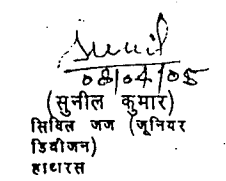 Sunil
08/04/05
(सुनील कुमार)
सिविल जज (जूनियर
डिवीजन)
हाथरस